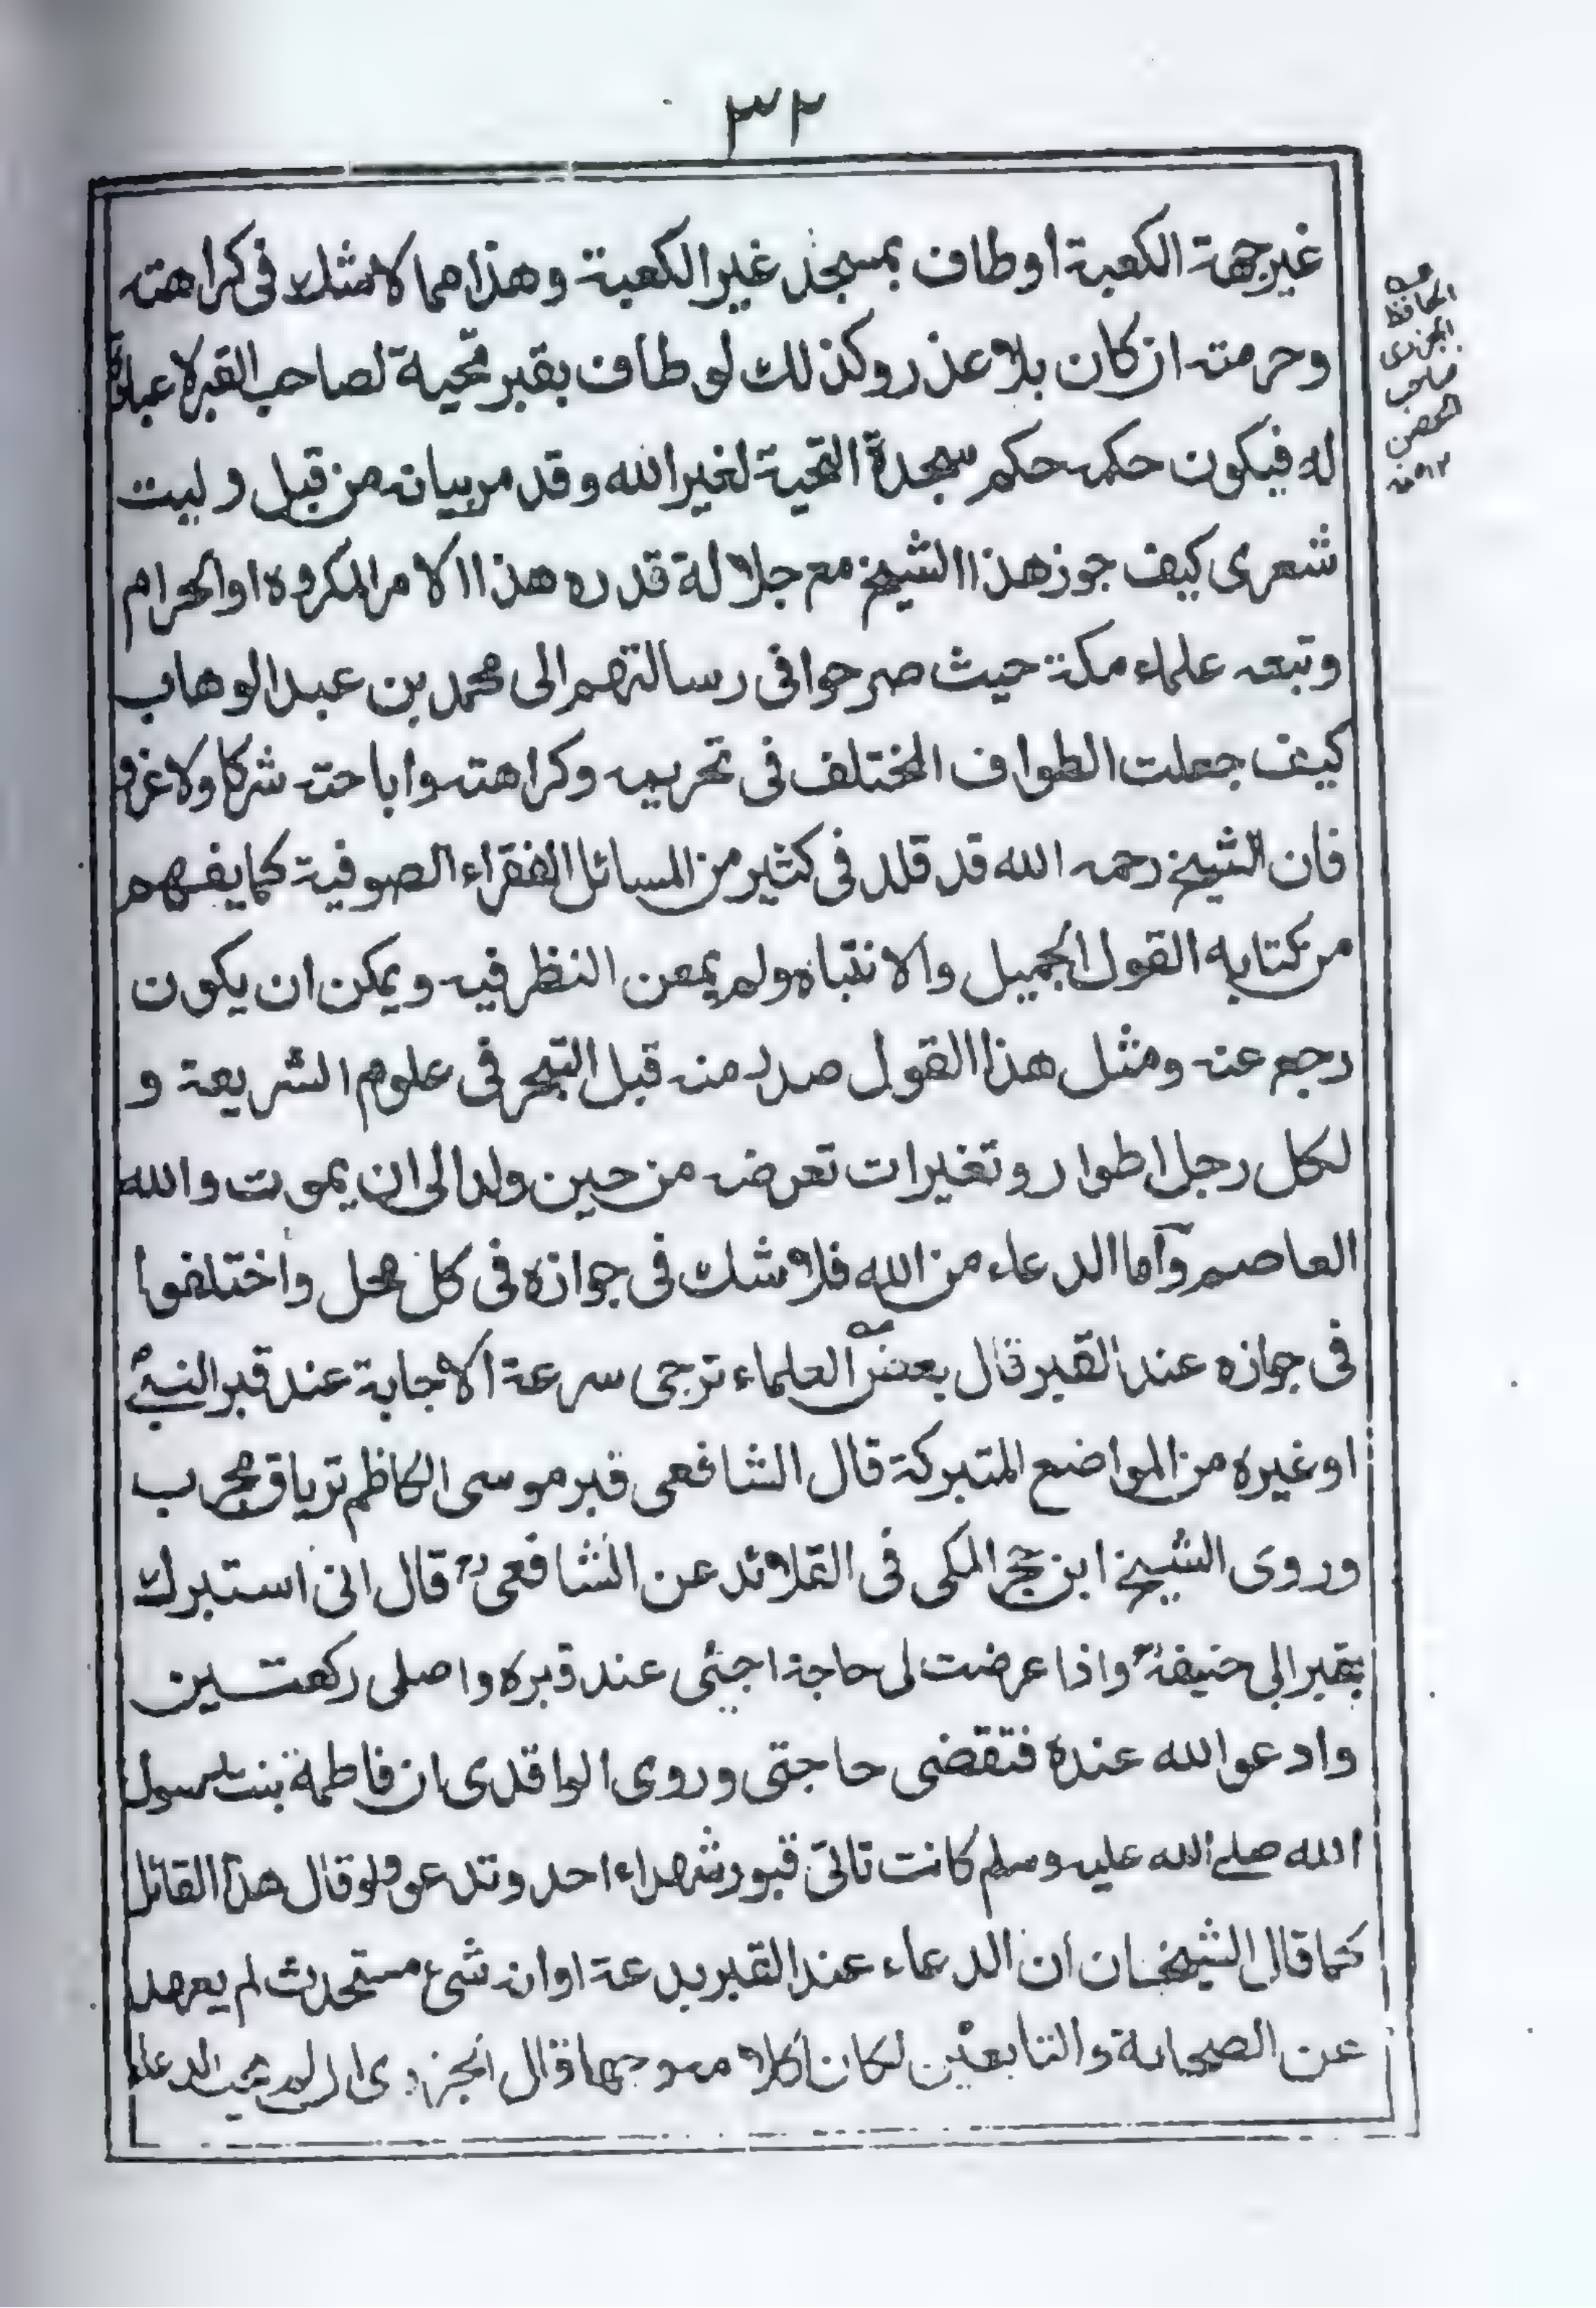 ٣٢
غير جهة الكعبة او طاف بمسجد غير الكعبة وهذا مما لا شك فى كراهته
وحرمته ان كان بلا عذر وكذلك لو طاف بقبر تحية لصاحب القبر لا عبادة
له فيكون حكمه حكم سجدة التحية لغير الله وقد مر بيانه من قبل وليت
شعرى كيف جوز هذا الشيخ مع جلالة قدره هذا الامر المكروه او الحرام
وتبعه علماء مكة حيث صرحوا فى رسالتهم الى محمد بن عبد الوهاب
كيف جعلت الطواف المختلف فى تحريمه وكراهته واباحته شركا ولا غرو
فان الشيخ رحمه الله قد قلد فى كثير من المسائل الفقراء الصوفية كما يفهم
من كتابه القول الجميل والانتباه ولم يمعن النظر فيه ويمكن ان يكون
رجع عنه ومثل هذا القول صدر منه قبل التبحر فى علوم الشريعة و
لكل رجل اطوار وتغيرات تعرضه من حين ولد الى ان يموت والله
العاصم وآما الدعاء من الله فلا شك فى جوازه فى كل محل واختلفوا
فى جوازه عند القبر قال بعض العلماء ترجى سرعة الاجابة عند قبر النبيؐ
او غيره من المواضع المتبركة قال الشافعى قبر موسى الكاظم ترياق مجرب
وروى الشيخ ابن حجر المكى فى القلائد عن الشافعىؒ قال انى استبرك
بقبر ابى حنيفةؒ واذا عرضت لى حاجة اجيئى عند قبره واصلى ركعتين
وادعو الله عنده فتقضى حاجتى وروى الواقدى ان فاطمة بنت رسول
الله صلے الله عليه وسلم كانت تاتى قبور شهداء احد وتدعو ولو قال هذا القائل
كما قال الشيخان ان الدعاء عند القبر بدعة او انه شىء مستحدث لم يعهد
عن الصحابة والتابعين لكان كلاما موجها قال الجزرى ان لم يجب الدعاء
الحافظ
الجزرى
صاحب
الحصن
١٢ منه